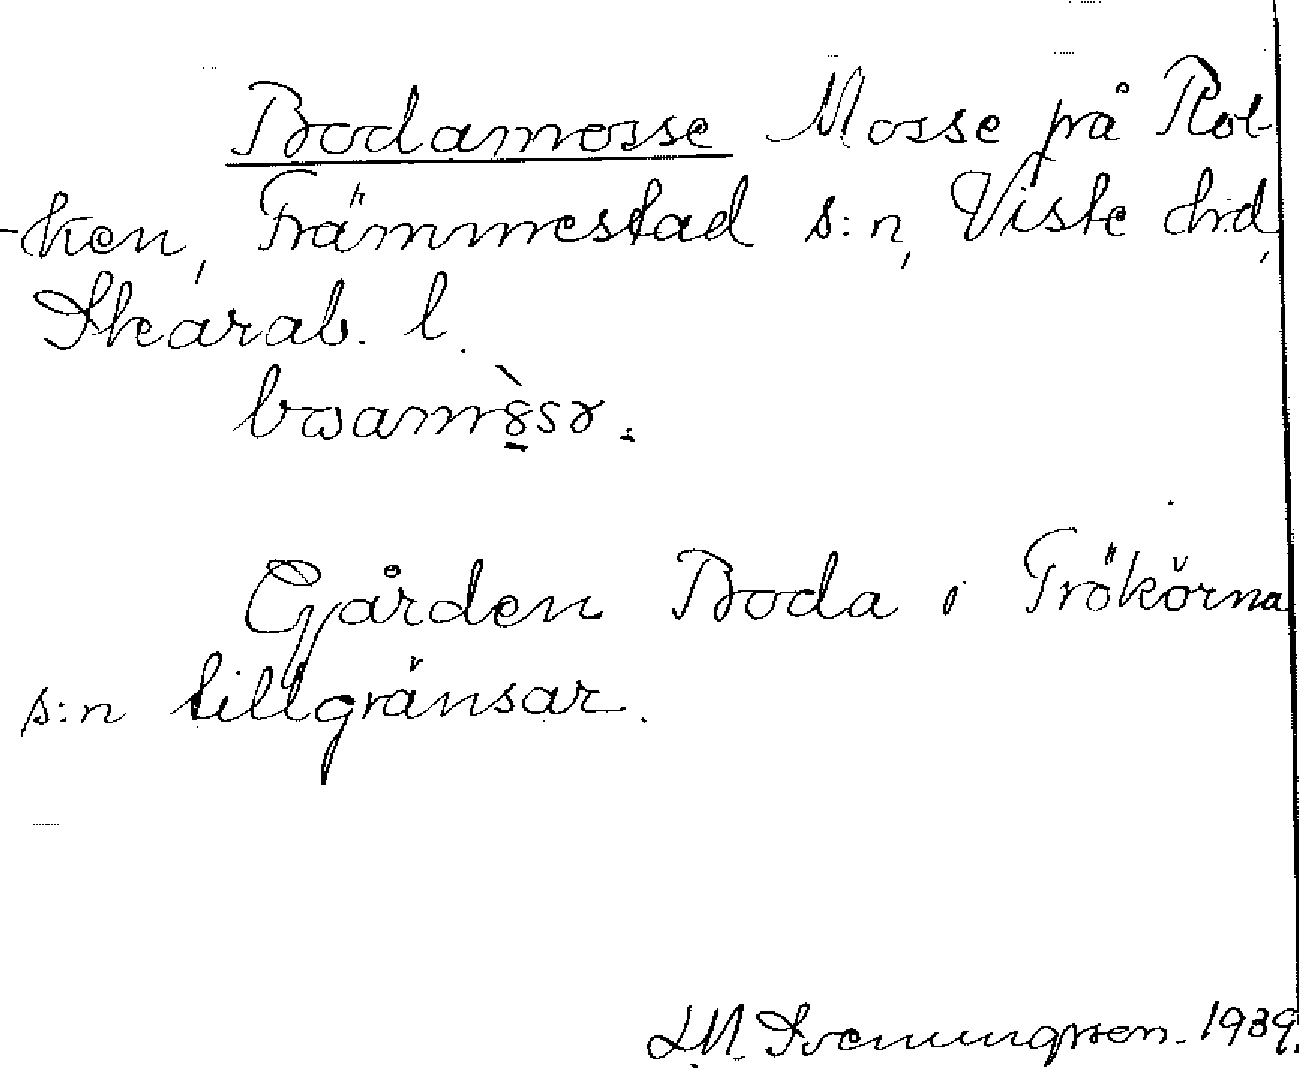 Bodamosse Mosse på Rot-
-ken, Främmestad s:n, Viste hd,
Skarab. l.
Gården Boda i Frökörna
s:n tillgränsar.
Svenungsson. 1939.